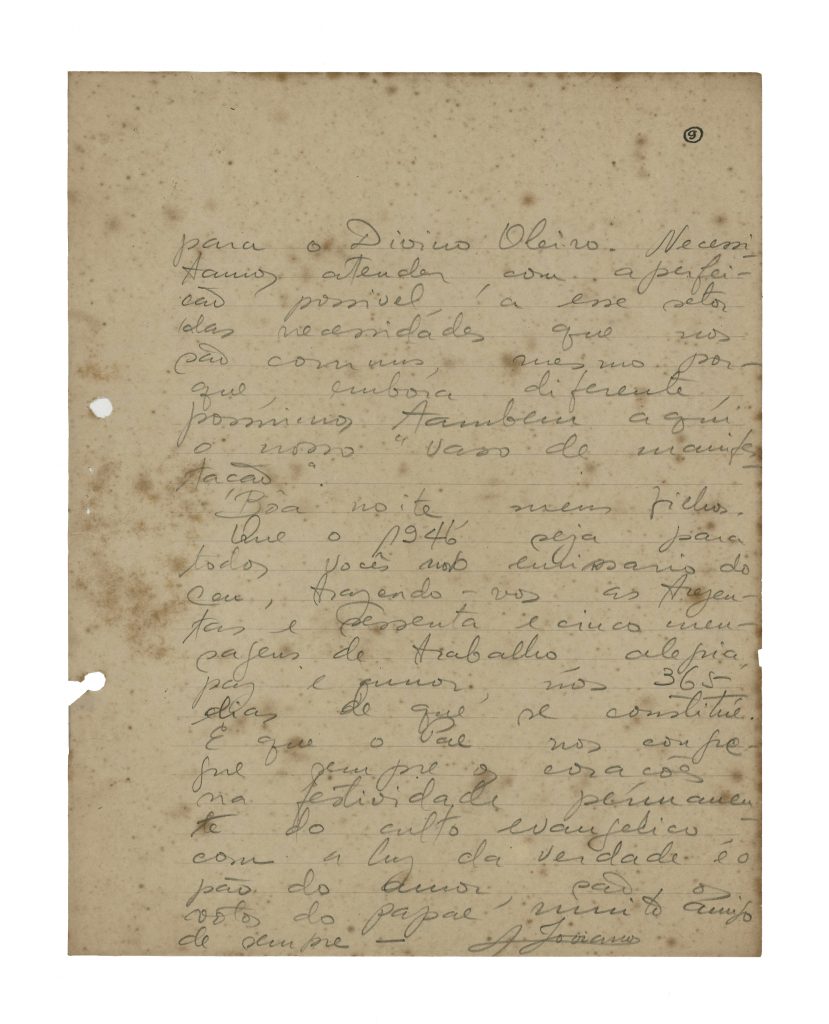 9
para o Divino Oleiro. Necessi-
tamos atender com a perfei-
cão possivel, a esse setor
das necessidades que nos
são comuns, mesmo por-
que, embóra diferente,
possuimos tambem aqui
o nosso "vaso de manifes-
tacão".
Bôa noite meus filhos.
Que o 1946 seja para
todos vocês emissario do
Ceu, trazendo-vos as trezen-
tas e sessenta e cinco men-
sagens de trabalho, alegria,
paz e amor, nos 365
dias de que se constitúe.
E que o Pae nos congre-
gue sempre os corações
na festividade permanen-
te do culto evangelico
com a luz da verdade e o
pão do amor, são os
votos do papae muito amigo
de sempre —
A. Joviano